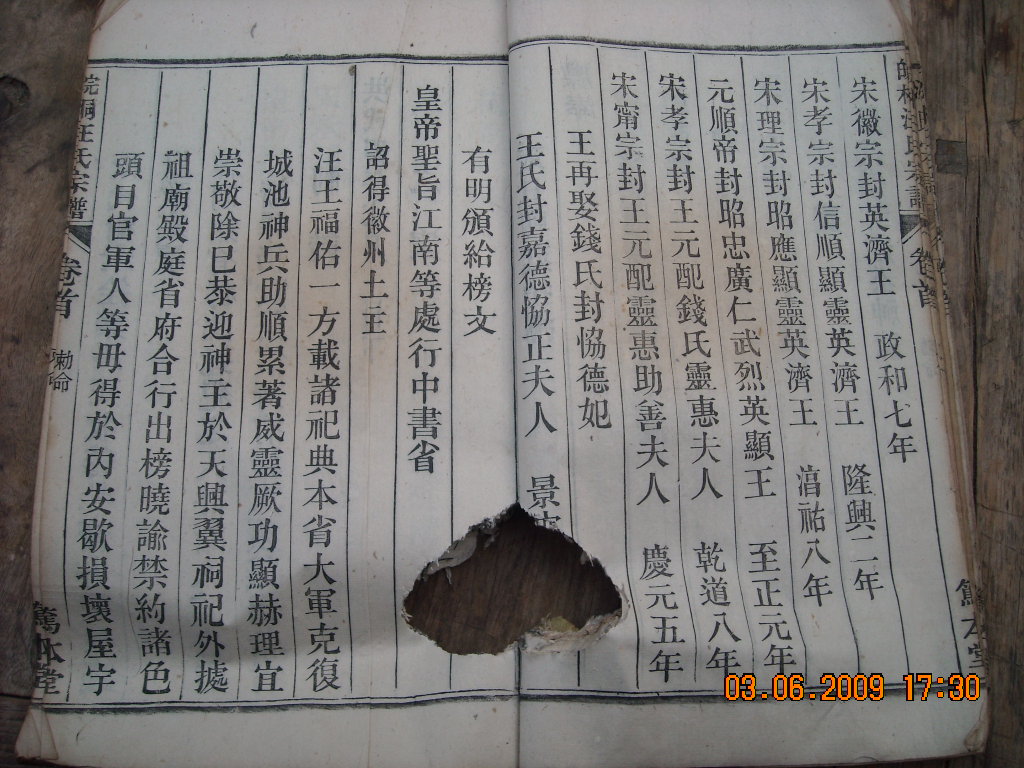 宋徽宗封英濟王　政和七年
宋孝宗封信順顯靈英濟王　隆興二年
宋理宗封昭應顯靈英濟王　淳祐八年
元順帝封昭忠廣仁武烈英顯王　至正元年
宋孝宗封王元配錢氏靈惠夫人　乾道八年
宋甯宗封王元配靈惠助善夫人　慶元五年
王再娶錢氏封恊德妃
王氏封嘉德恊正夫人　景
有明頒給榜文
皇帝聖旨江南等處行中書省
詔得徽州土主
汪王福佑一方載諸祀典本省大軍克復
城池神兵助順累著威靈厥功顯赫理宜
崇敬除巳恭迎神主於天興翼祠祀外據
祖廟殿庭省府合行出榜曉諭禁約諸色
頭目官軍人等毋得於內安歇損壞屋宇
皖桐汪氏宗譜
卷首
勅命
篤本堂
卷首
03.06.2009 17:30